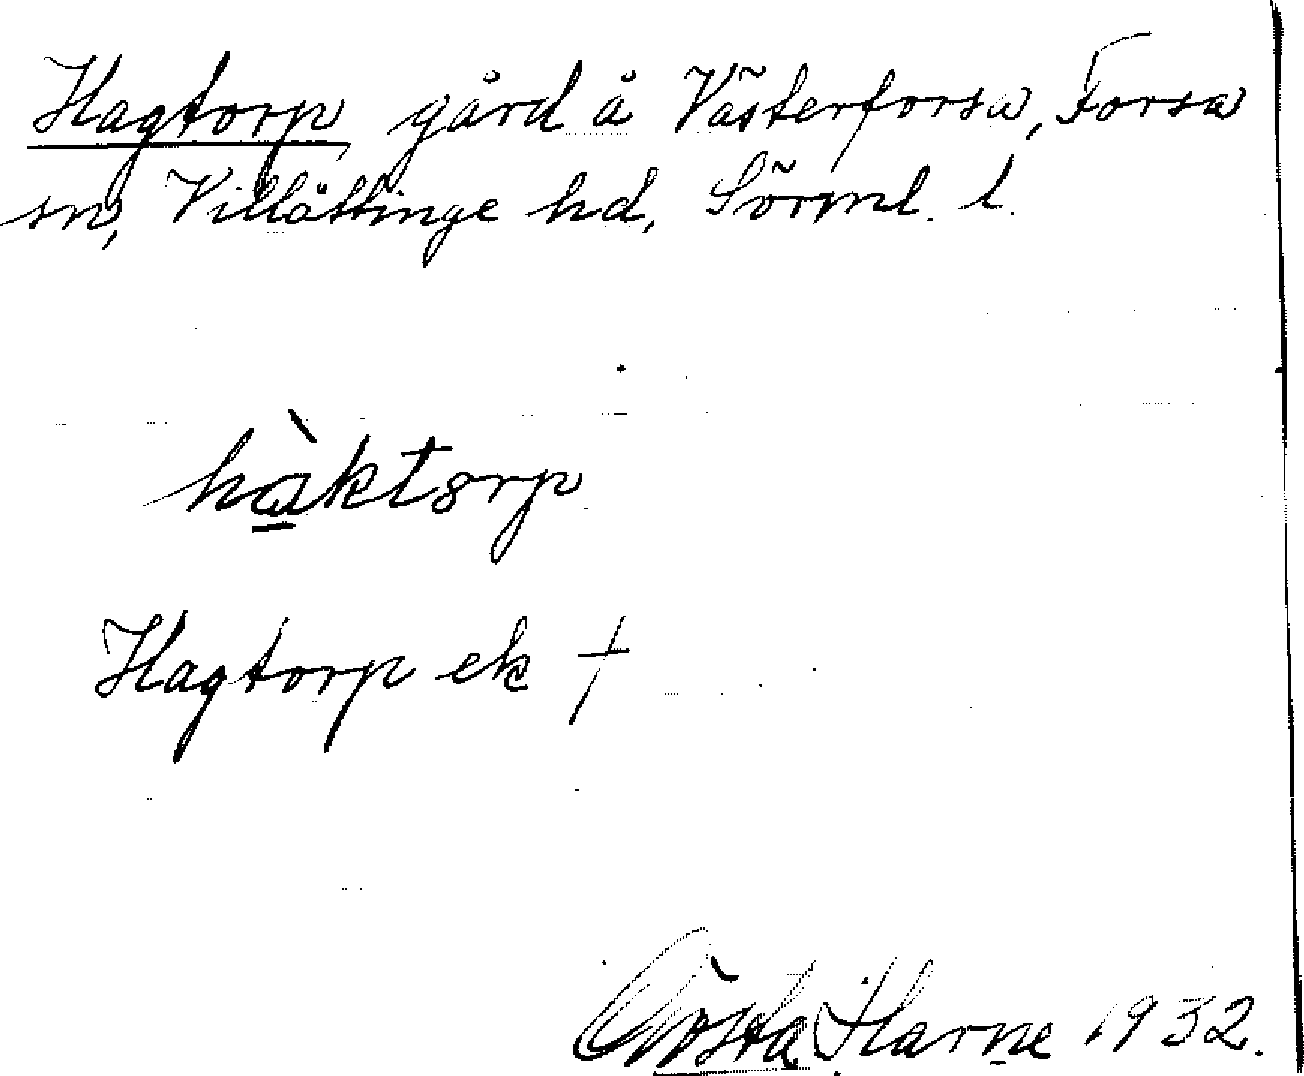 Hagtorp gård å Västerforsa, Forsa
sn, Villåttinge hd, Sörml. l.
hàktorp
Hagtorp ek †
Gösta Harne 1932.